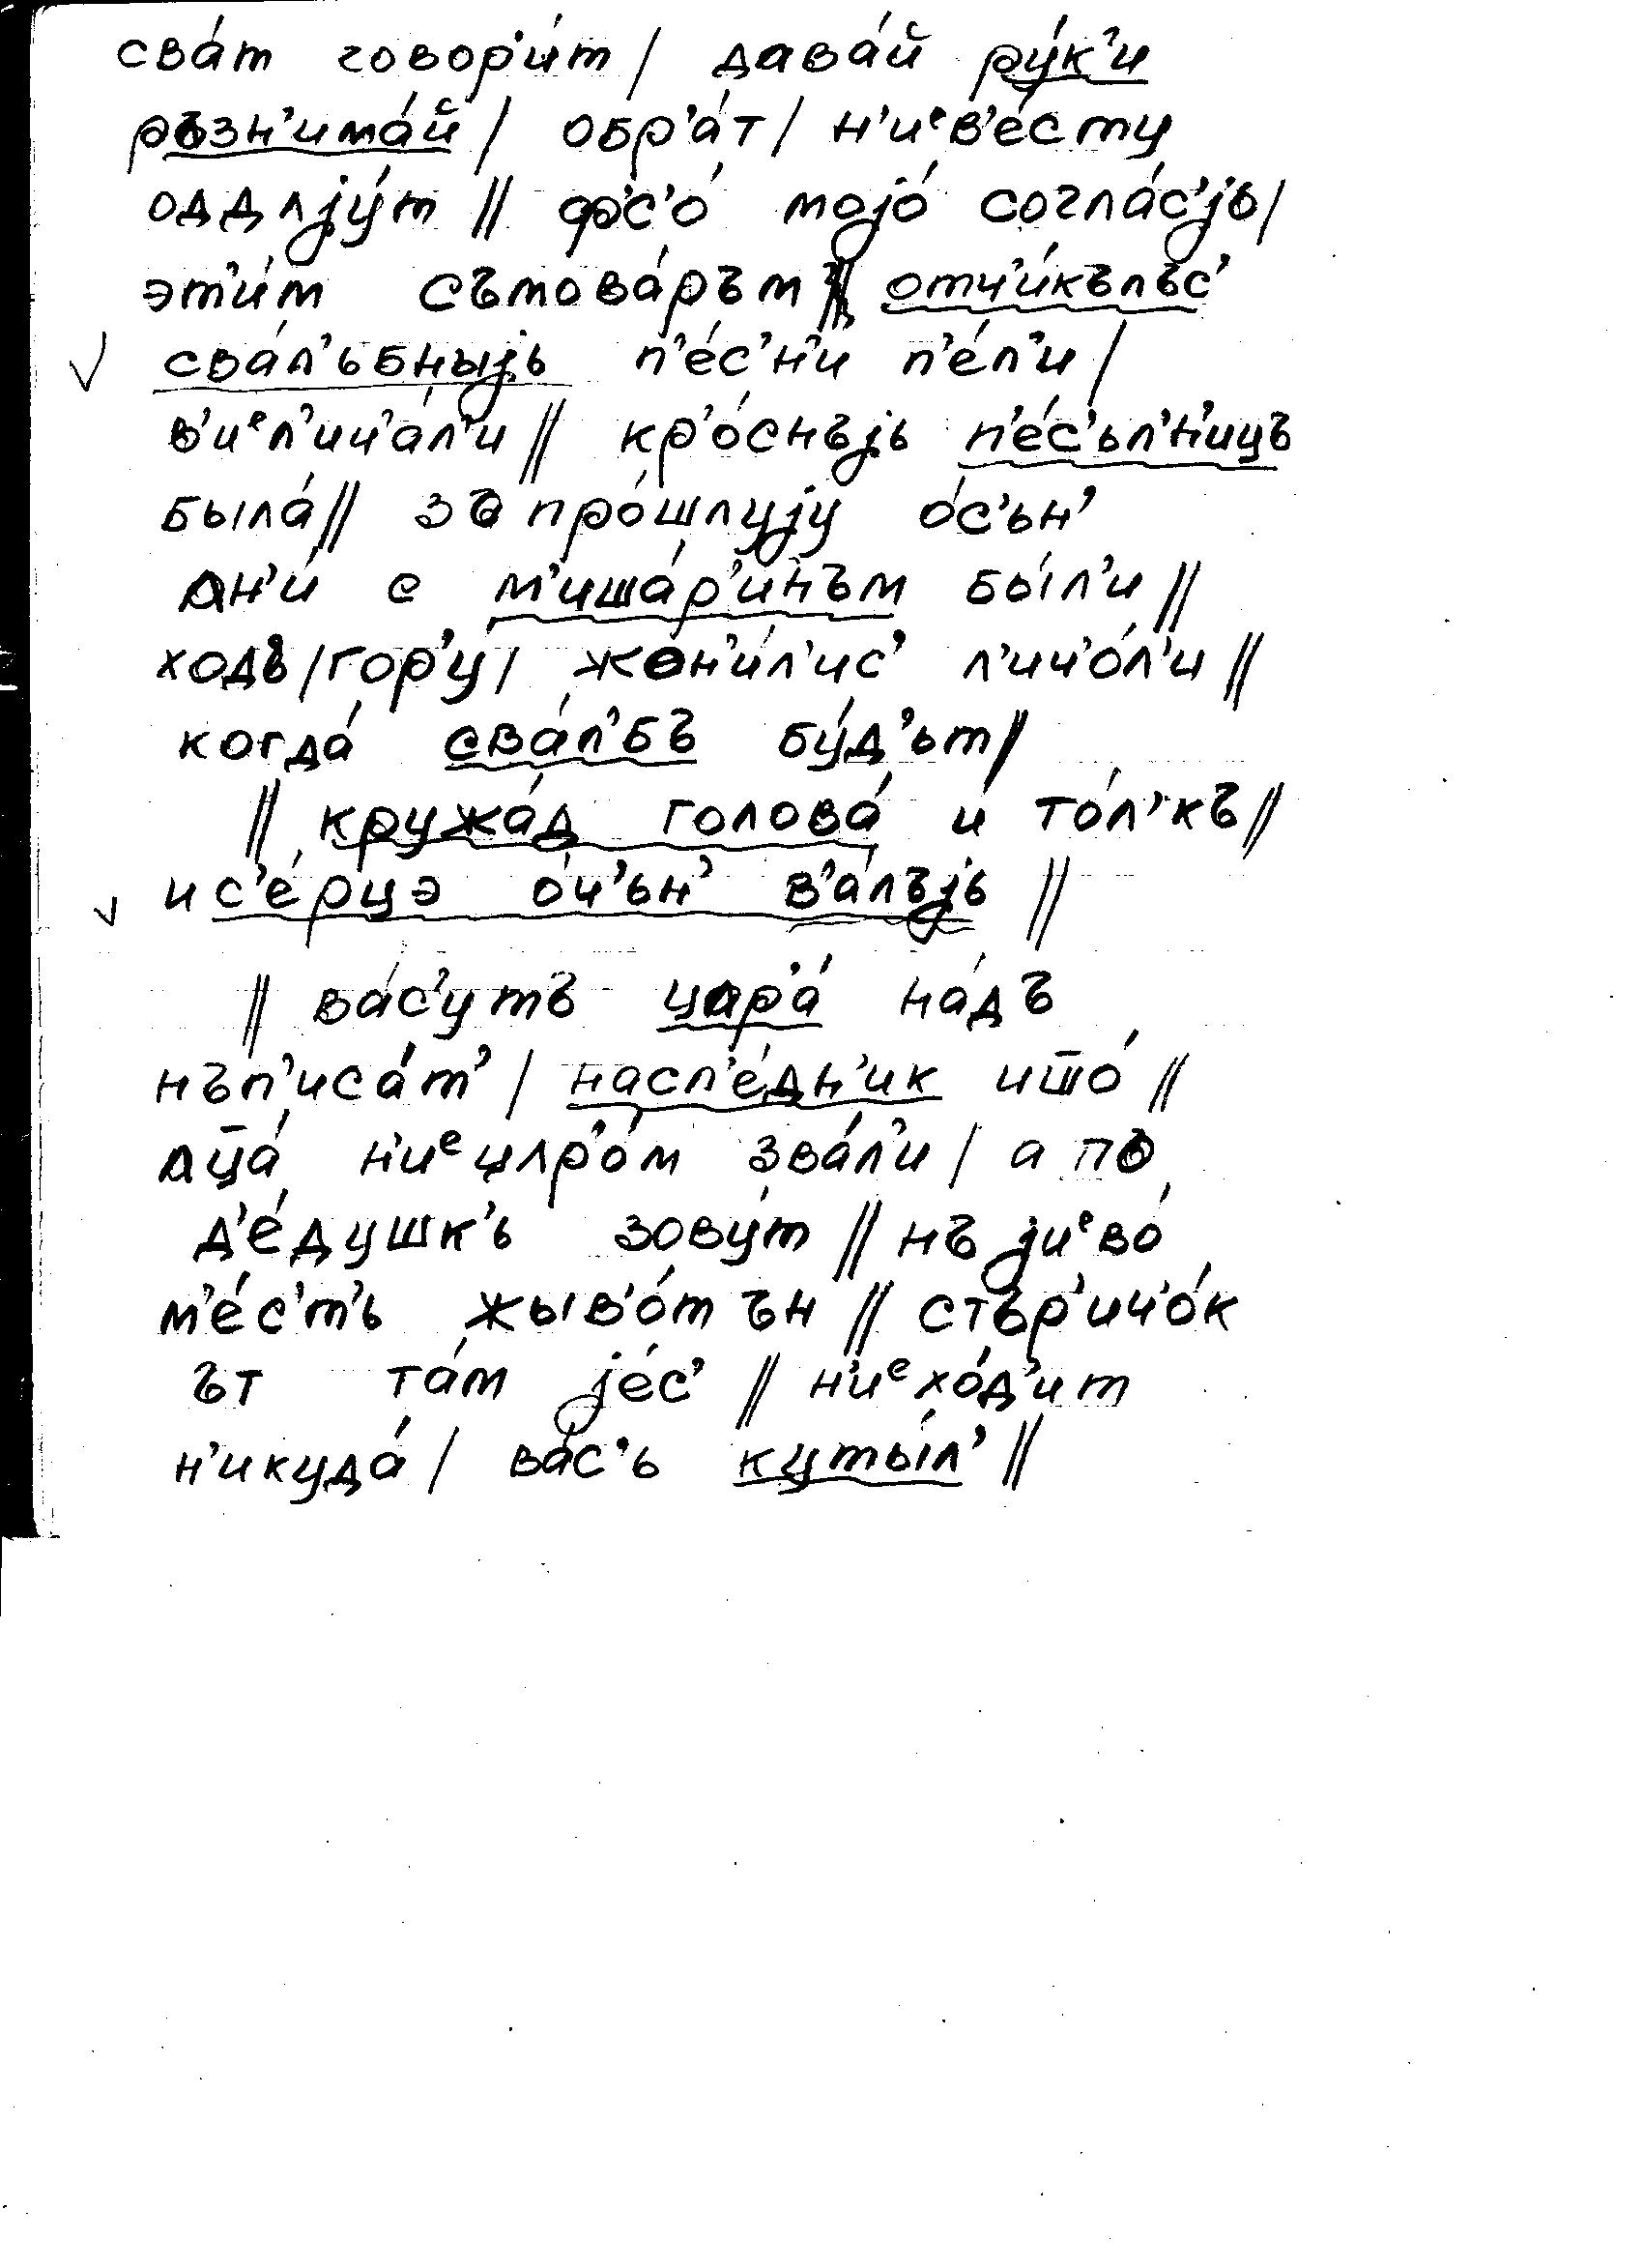 сва́т говор'и́т / дава́й ру́к'и
ръзн'има́й / обр'а́т / н'иᵉв'е́сту
оддлjу́т // ф'с'о́ моjо́ согла́с'jь /
эт'и́м съмова́ръм // отч'и́кълъс'
сва́л'ьбныjь п'е́с'н'и п'е́л'и /
в'иᵉл'ич'а́л'и // кр'о́снъjь п'е́с'ьл'н'ицъ
была́ // зъ про́шлуjу о́с'ьн'
лн'и́ с м'иша́р'инъм бы́л'и //
ходъ / гор'у / жен'и́л'ис' л'ич'о́л'и //
когда́ сва́л'бъ бу́д'ьт /
// кружа́д голова́ и то́л'къ //
и с'е́рцэ о́ч'ьн' в'а́лъjь //
// ва́с'утъ цар'а́ на́дъ
нъп'иса́т' / насл'е́дн'ик ишто́ //
лца́ н'иᵉ цлр'о́м зва́л'и / а по
д'е́душк'ь зову́т // нъ jиᵉво́
м'е́с'т'ь жыв'о́т ън // стър'ич'о́к
ът та́м jе́с' // н'иᵉ хо́д'ит
н'икуда́ / ва́с'ь куты́л' //